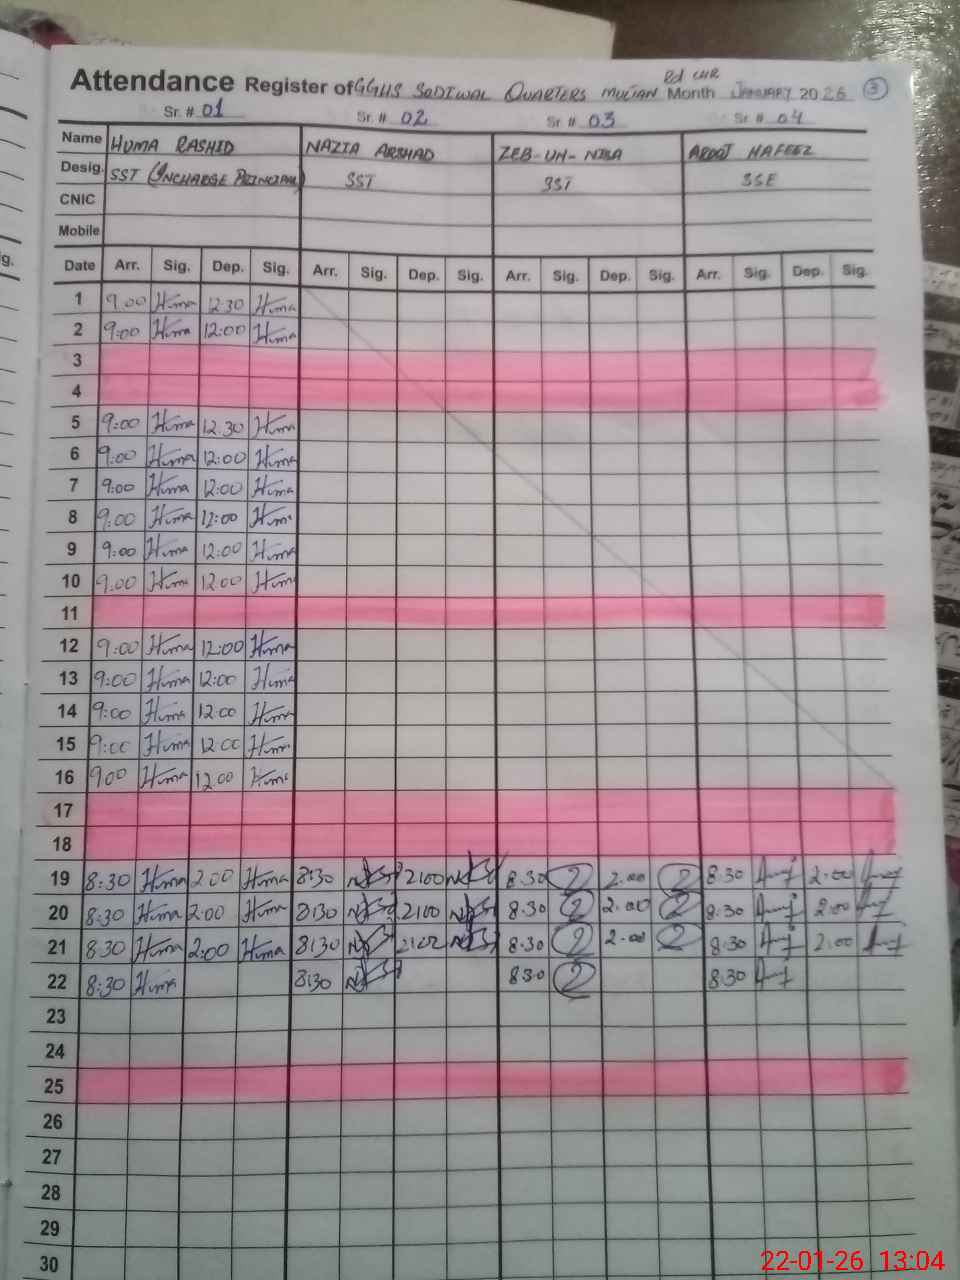 Bd CHR
Attendance Register of GGHS SODIWAL QUARTERS MULTAN Month JANUARY 2026 3
Sr. # 01 Sr. # 02 Sr. # 03 Sr. # 04
Name HUMA RASHID NAZIA ARSHAD ZEB-UN-NISA AROOJ HAFEEZ
Desig. SST (INCHARGE PRINCIPAL) SST SST SSE
CNIC
Mobile
Date Arr. Sig. Dep. Sig. Arr. Sig. Dep. Sig. Arr. Sig. Dep. Sig. Arr. Sig. Dep. Sig.
1 9.00 Huma 12.30 Huma
2 9:00 Huma 12:00 Huma
3
4
5 9:00 Huma 12.30 Huma
6 9:00 Huma 12:00 Huma
7 9:00 Huma 12:00 Huma
8 9:00 Huma 12:00 Huma
9 9:00 Huma 12:00 Huma
10 9:00 Huma 12:00 Huma
11
12 9:00 Huma 12:00 Huma
13 9:00 Huma 12:00 Huma
14 9:00 Huma 12:00 Huma
15 9:00 Huma 12:00 Huma
16 9:00 Huma 12:00 Huma
17
18
19 8:30 Huma 2:00 Huma 8:30 2:00 8.30 2:00 8:30 2:00
20 8:30 Huma 2:00 Huma 8:30 2:00 8.30 2:00 8:30 2:00
21 8:30 Huma 2:00 Huma 8:30 2:00 8.30 2:00 8:30 2:00
22 8:30 Huma 8:30 8:30 8:30
23
24
25
26
27
28
29
30
22-01-26 13:04